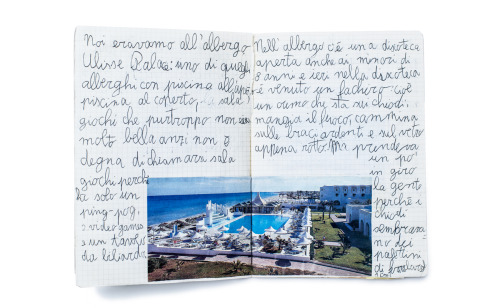 Noi eravamo all'albergo
Ulisse Palace: uno di quegli
alberghi con piscina all'aperto
piscina al coperto, sala
giochi che purtroppo non era
molto bella anzi non è
degna di chiamarsi sala
giochi perché
ha solo un
ping-pong
2 videogames
e un tavolo
da biliardo
Nell'albergo c'è una discoteca
aperta anche ai minori di
8 anni e ieri nella discoteca
è venuto un fachiro: cioè
un uomo che sta sui chiodi,
mangia il fuoco, cammina
sulle braci ardenti e sul vetro
appena rotto. Ma prendeva
un po'
in giro
la gente
perché i
chiodi
sembrava
no dei
paletti
di